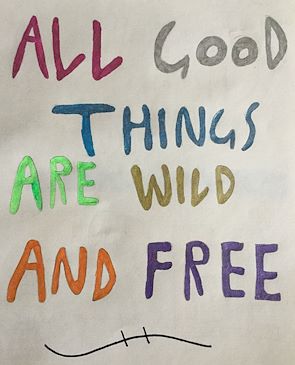 ALL GOOD
THINGS
ARE WILD
AND FREE